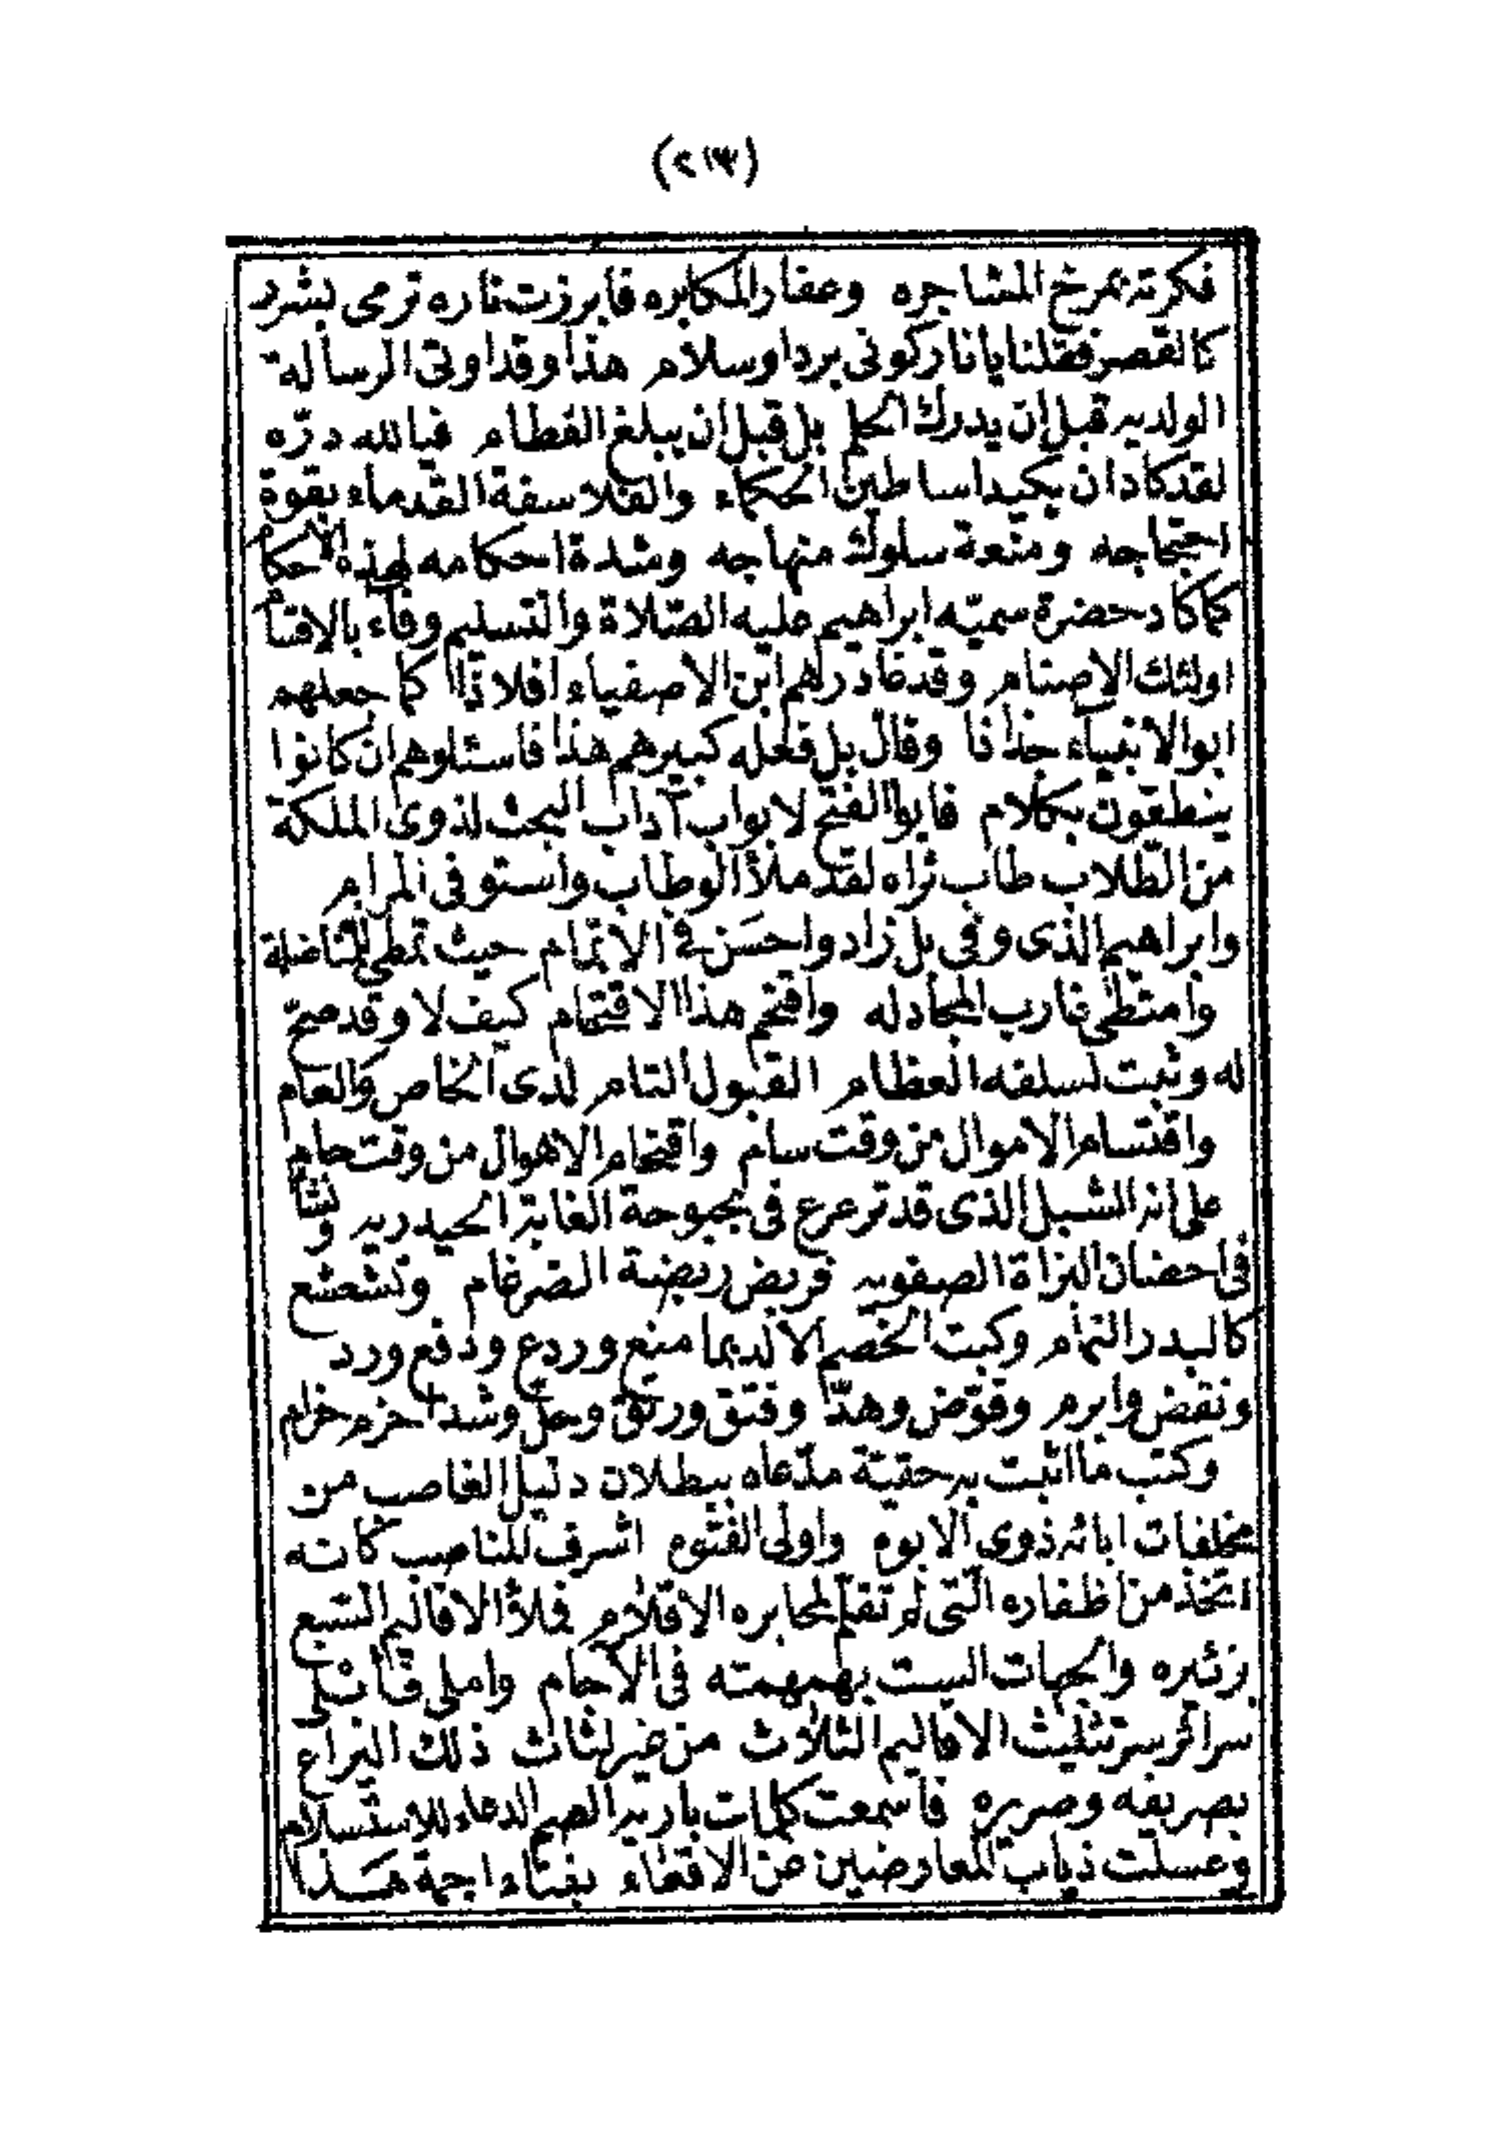 (٢١٣)
فكرته بمرخ المشاجره وعفار المكابره فابرزت ناره ترمى بشرر
كالقصر فقلنا يا نار كونى بردا وسلام هذا وقد اوتى الرسالة
الولديه قبل ان يدرك الحلم بل قبل ان يبلغ الفطام فيا لله درّه
لقد كاد ان يكيد اساطين الحكماء والفلاسفة القدماء بقوة
احتجاجه ومتعة سلوك منهاجه وشدة احكامه لهذه الاحكام
كما كاد حضرة سميّه ابراهيم عليه الصّلاة والتسليم وفاء بالاقسام
اولئك الاصنام وقد غادرهم ابن الاصفياء افلاذا كما جعلهم
ابو الانبياء جذاذا وقال بل فعله كبيرهم هذا فاسئلوهم ان كانوا
ينطقون بكلام فابو الفتح لابواب آداب البحث لذوى الملكة
من الطّلاب طاب ثراه لقد ملأ الوطاب واستوفى المرام
وابراهيم الذى وفى بل زاد واحسَن فى الاتمام حيث تمطى للمناضلة
وامتطى غارب المجادله واقتحم هذا الاقتحام كيف لا وقد صحّ
له وثبت لسلفه العظام القبول التام لدى الخاص والعام
واقتسام الاموال من وقت سام واقتحام الاهوال من وقت حام
على انه الشبل الذى قد ترعرع فى بحبوحة الغابة الحيدريه ونشأ
فى احضان البزاة الصفويه فربض ربضة الضرغام وتشعشع
كالبدر التمام وكبت الخصم الالد بما منع وردع ودفع ورد
ونقض وابرم وقوّض وهدّ وفتق ورتق وحل وشد احزم حزام
وكتب ما اثبت به حقيّة مدّعاه ببطلان دليل الغاصب من
مخلفات ابائه ذوى الابوه واولى الفتوه اشرف المناصب كانه
اتخذ من اظفاره التى لم تقلم لمحابره الاقلام فملأ الاقاليم السّبع
بزئيره والجهات الست بهمهمته فى الآجام واملى فأملى
سرائر سر تثليث الاقاليم الثلاث من غير لثالث ذلك اليراع
بصريفه وصريره فاسمعت كلمات باريه الصم الدعاء للاستسلام
وعسلت ذياب المعارضين عن الاقعاء بفناء اجمة هــذا